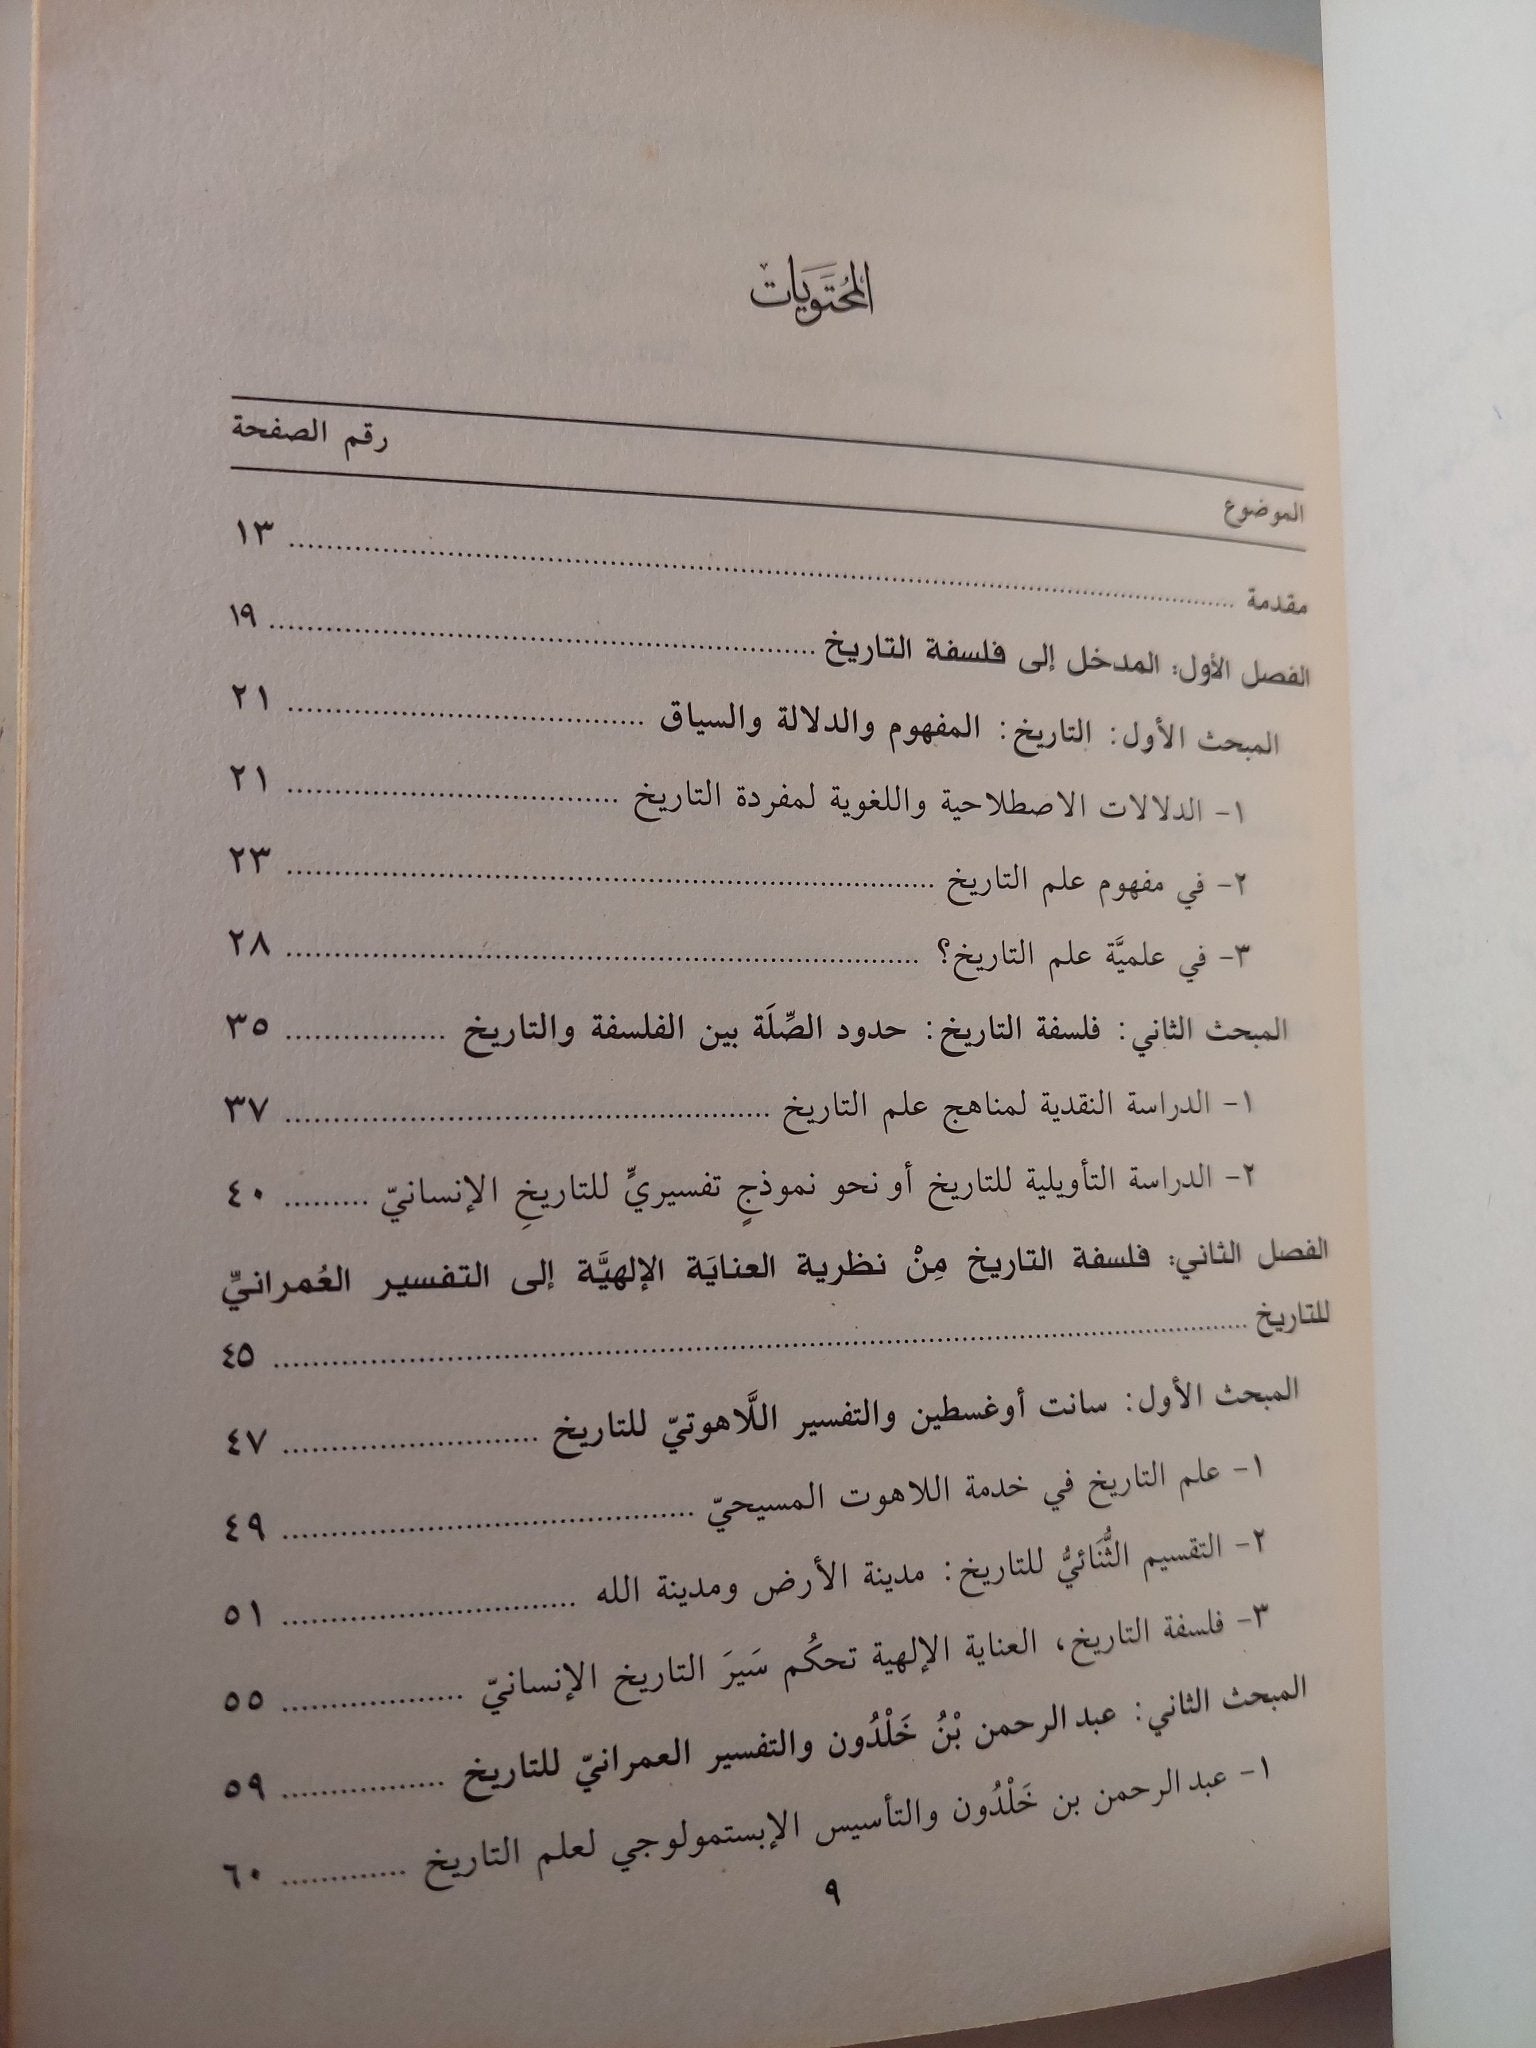 المُحتَوَيات
الموضوع رقم الصفحة
مقدمة ........ ١٣
الفصل الأول: المدخل إلى فلسفة التاريخ ........ ١٩
المبحث الأول: التاريخ: المفهوم والدلالة والسياق ........ ٢١
١- الدلالات الاصطلاحية واللغوية لمفردة التاريخ ........ ٢١
٢- في مفهوم علم التاريخ ........ ٢٣
٣- في علميَّة علم التاريخ؟ ........ ٢٨
المبحث الثاني: فلسفة التاريخ: حدود الصِّلَة بين الفلسفة والتاريخ ........ ٣٥
١- الدراسة النقدية لمناهج علم التاريخ ........ ٣٧
٢- الدراسة التأويلية للتاريخ أو نحو نموذجٍ تفسيريٍّ للتاريخِ الإنسانيّ ........ ٤٠
الفصل الثاني: فلسفة التاريخ مِنْ نظرية العنايَة الإلهيَّة إلى التفسير العُمرانيِّ
للتاريخ ........ ٤٥
المبحث الأول: سانت أوغسطين والتفسير اللَّاهوتيّ للتاريخ ........ ٤٧
١- علم التاريخ في خدمة اللاهوت المسيحيّ ........ ٤٩
٢- التقسيم الثُّنَائيُّ للتاريخ: مدينة الأرض ومدينة الله ........ ٥١
٣- فلسفة التاريخ، العناية الإلهية تحكُم سَيرَ التاريخ الإنسانيّ ........ ٥٥
المبحث الثاني: عبد الرحمن بْنُ خَلْدُون والتفسير العمرانيّ للتاريخ ........ ٥٩
١- عبد الرحمن بن خَلْدُون والتأسيس الإبستمولوجي لعلم التاريخ ........ ٦٠
٩